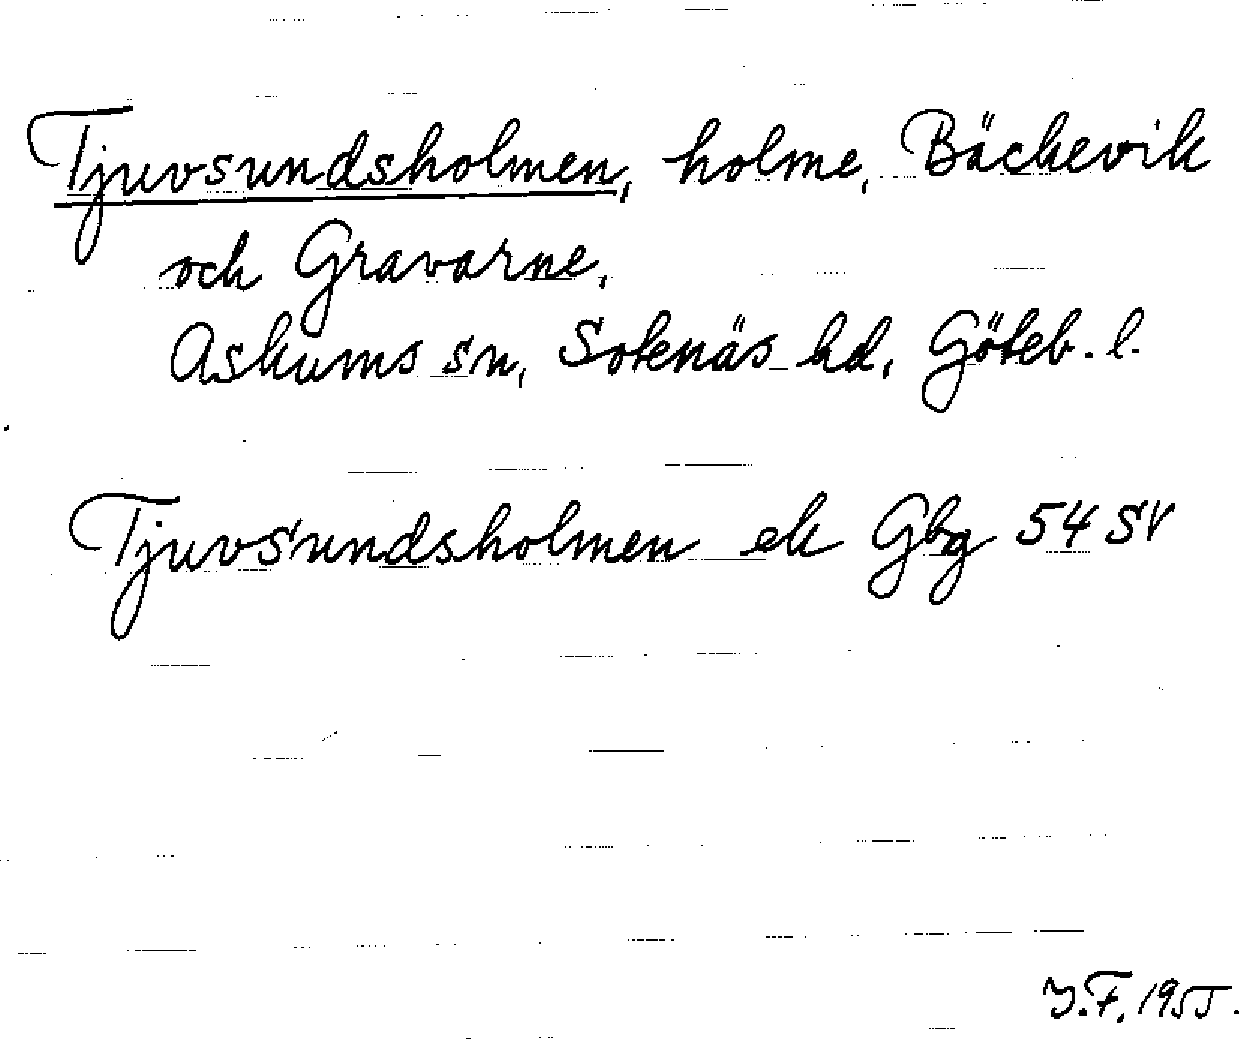 Tjuvsundsholmen, holme, Bäckevik
och Gravarne,
Askums sn, Sotenäs hd, Göteb. l.
Tjuvsundsholmen ek Gbg 54 SV
Y.F. 1955.